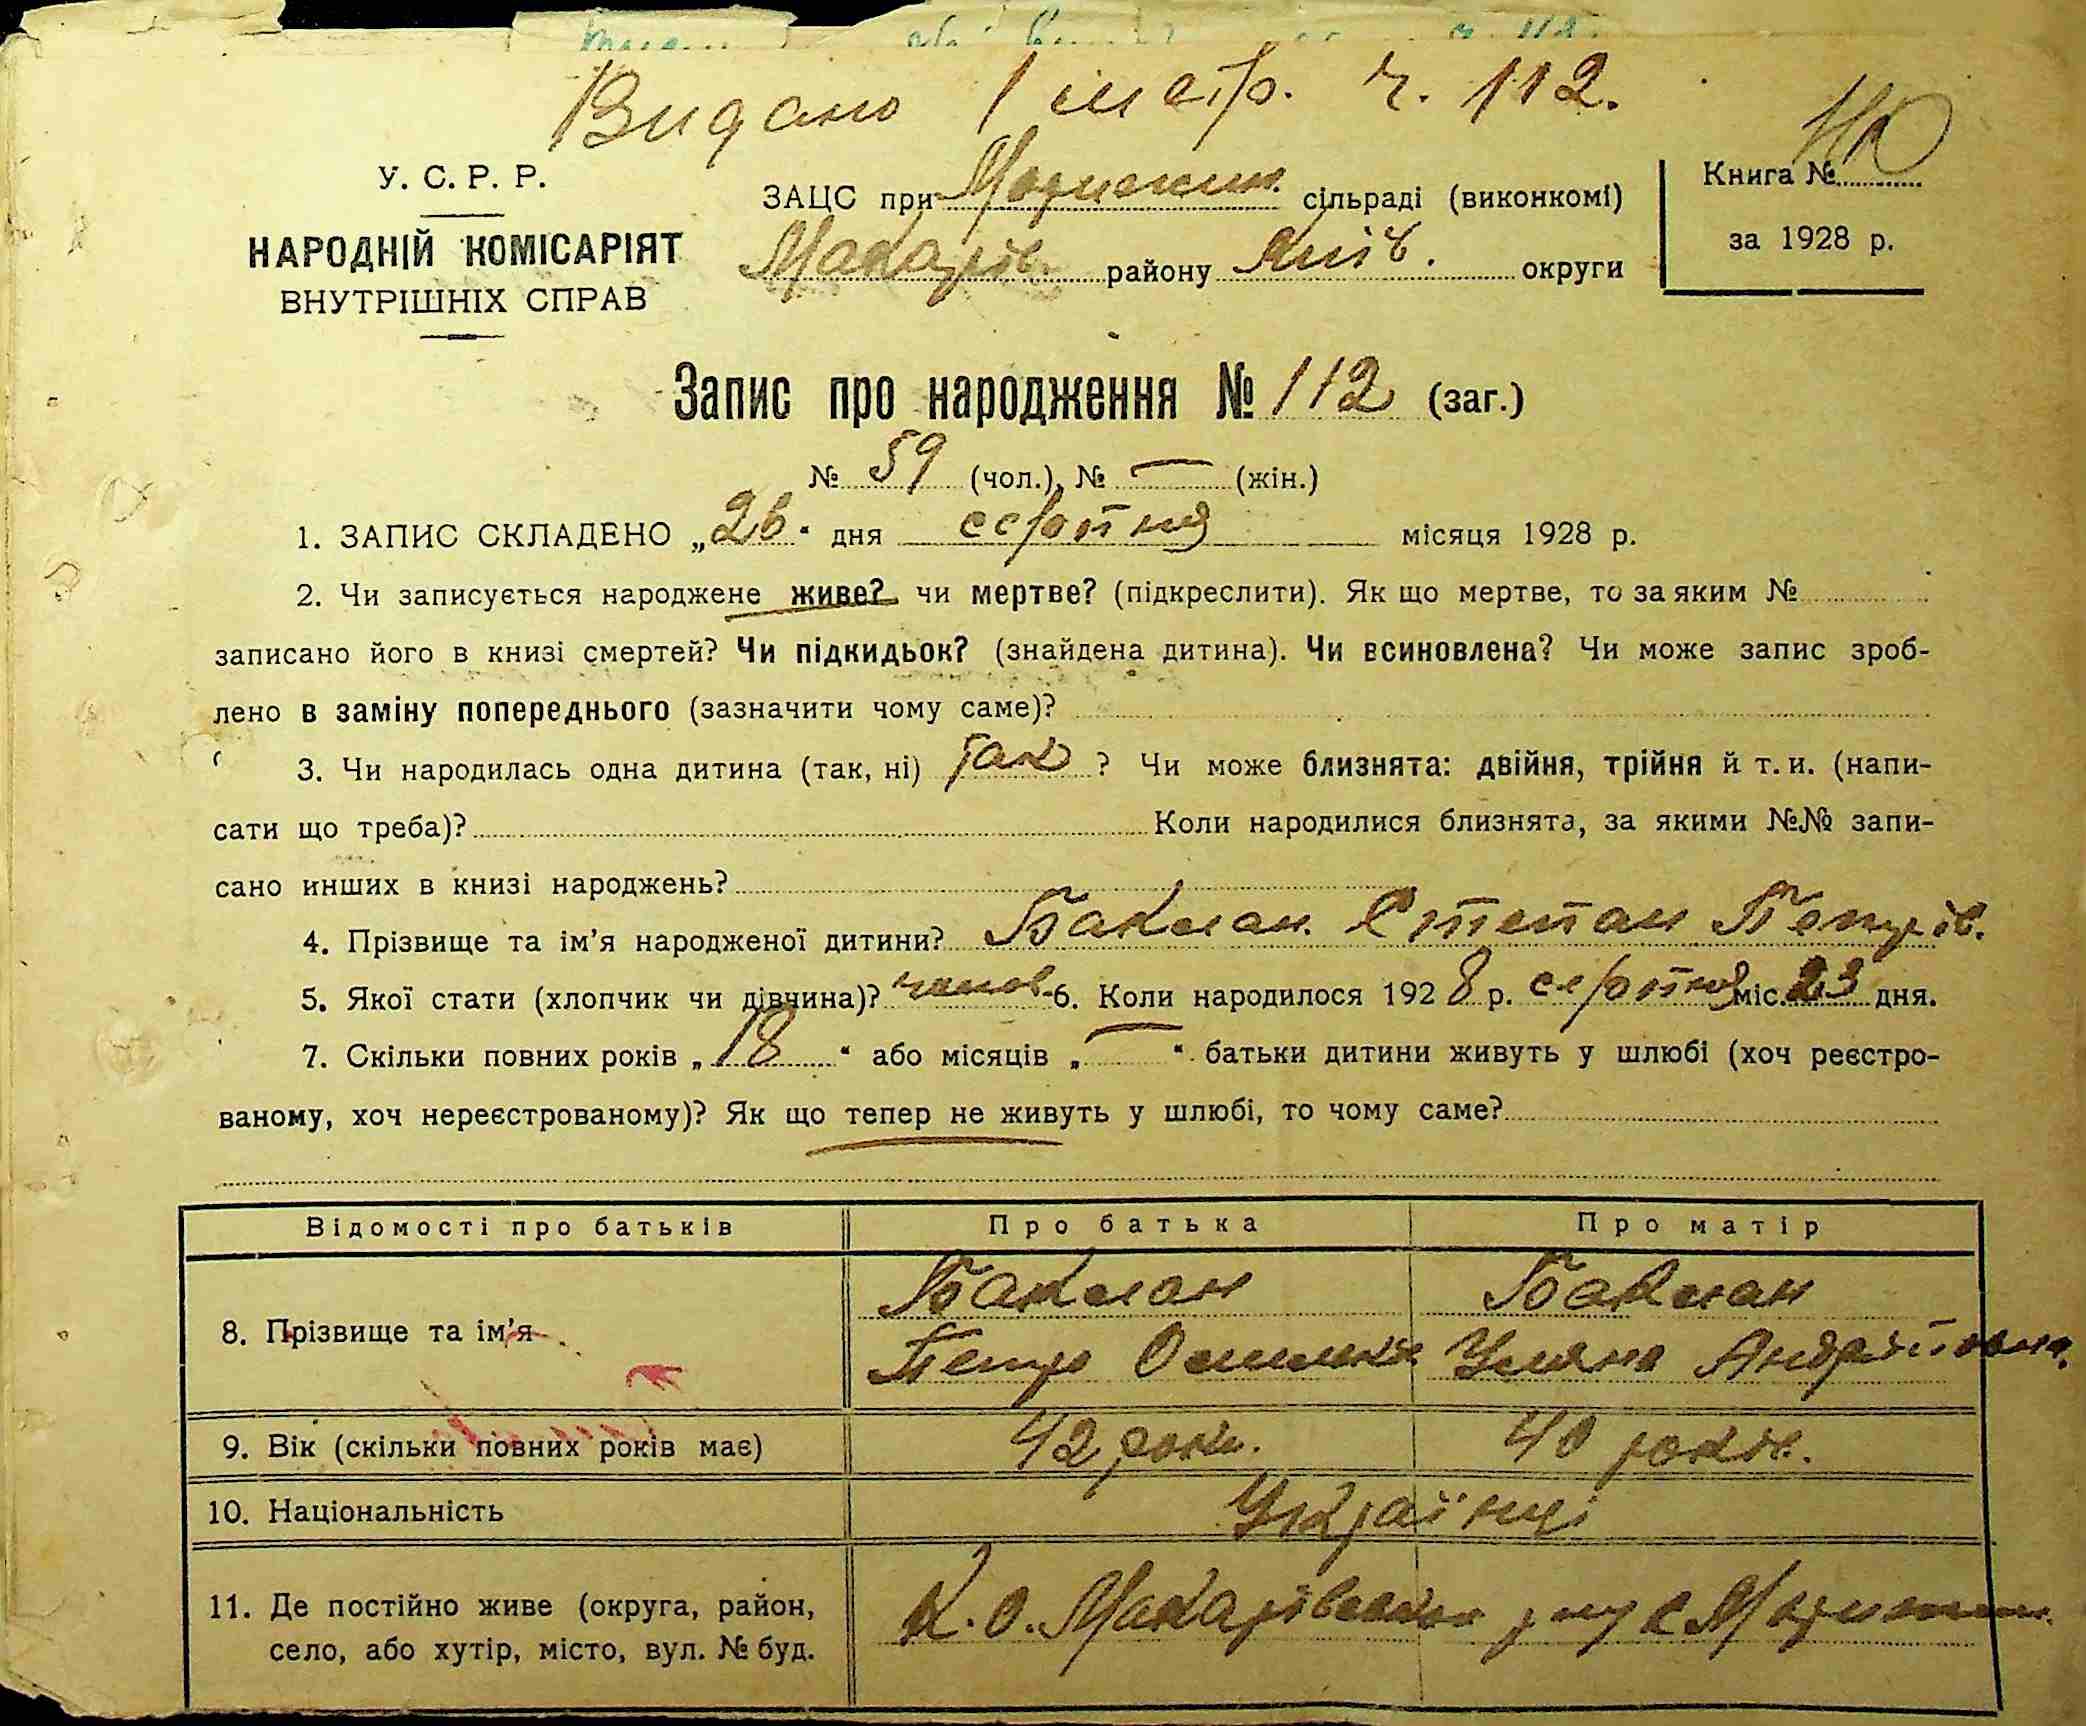 Видано 1 ч. 112.
У. С. Р. Р.
НАРОДНІЙ КОМІСАРІЯТ
ВНУТРІШНІХ СПРАВ
ЗАЦС при сільраді (виконкомі)
Макарів. району Київ. округи
Книга №
за 1928 р.
Запис про народження № 112 (заг.)
№ 59 (чол.), № — (жін.)
1. ЗАПИС СКЛАДЕНО „26“ дня серпня місяця 1928 р.
2. Чи записується народжене живе? чи мертве? (підкреслити). Як що мертве, то за яким №
записано його в книзі смертей? Чи підкидьок? (знайдена дитина). Чи всиновлена? Чи може запис зроб-
лено в заміну попереднього (зазначити чому саме)?
3. Чи народилась одна дитина (так, ні) так ? Чи може близнята: двійня, трійня й т. и. (напи-
сати що треба)? Коли народилися близнята, за якими №№ запи-
сано инших в книзі народжень?
4. Прізвище та ім’я народженої дитини? Баклан Степан Петрів.
5. Якої стати (хлопчик чи дівчина)? 6. Коли народилося 1928 р. серпня міс. 23 дня.
7. Скільки повних років „18“ або місяців „—“ батьки дитини живуть у шлюбі (хоч реєстро-
ваному, хоч нереєстрованому)? Як що тепер не живуть у шлюбі, то чому саме?
Відомості про батьків Про батька Про матір
8. Прізвище та ім’я Баклан Баклан
Петро Уляна Андріївна.
9. Вік (скільки повних років має) 42 роки. 40 років.
10. Національність Українці
11. Де постійно живе (округа, район,
село, або хутір, місто, вул. № буд.
К. О. Макарівськ р-ну с